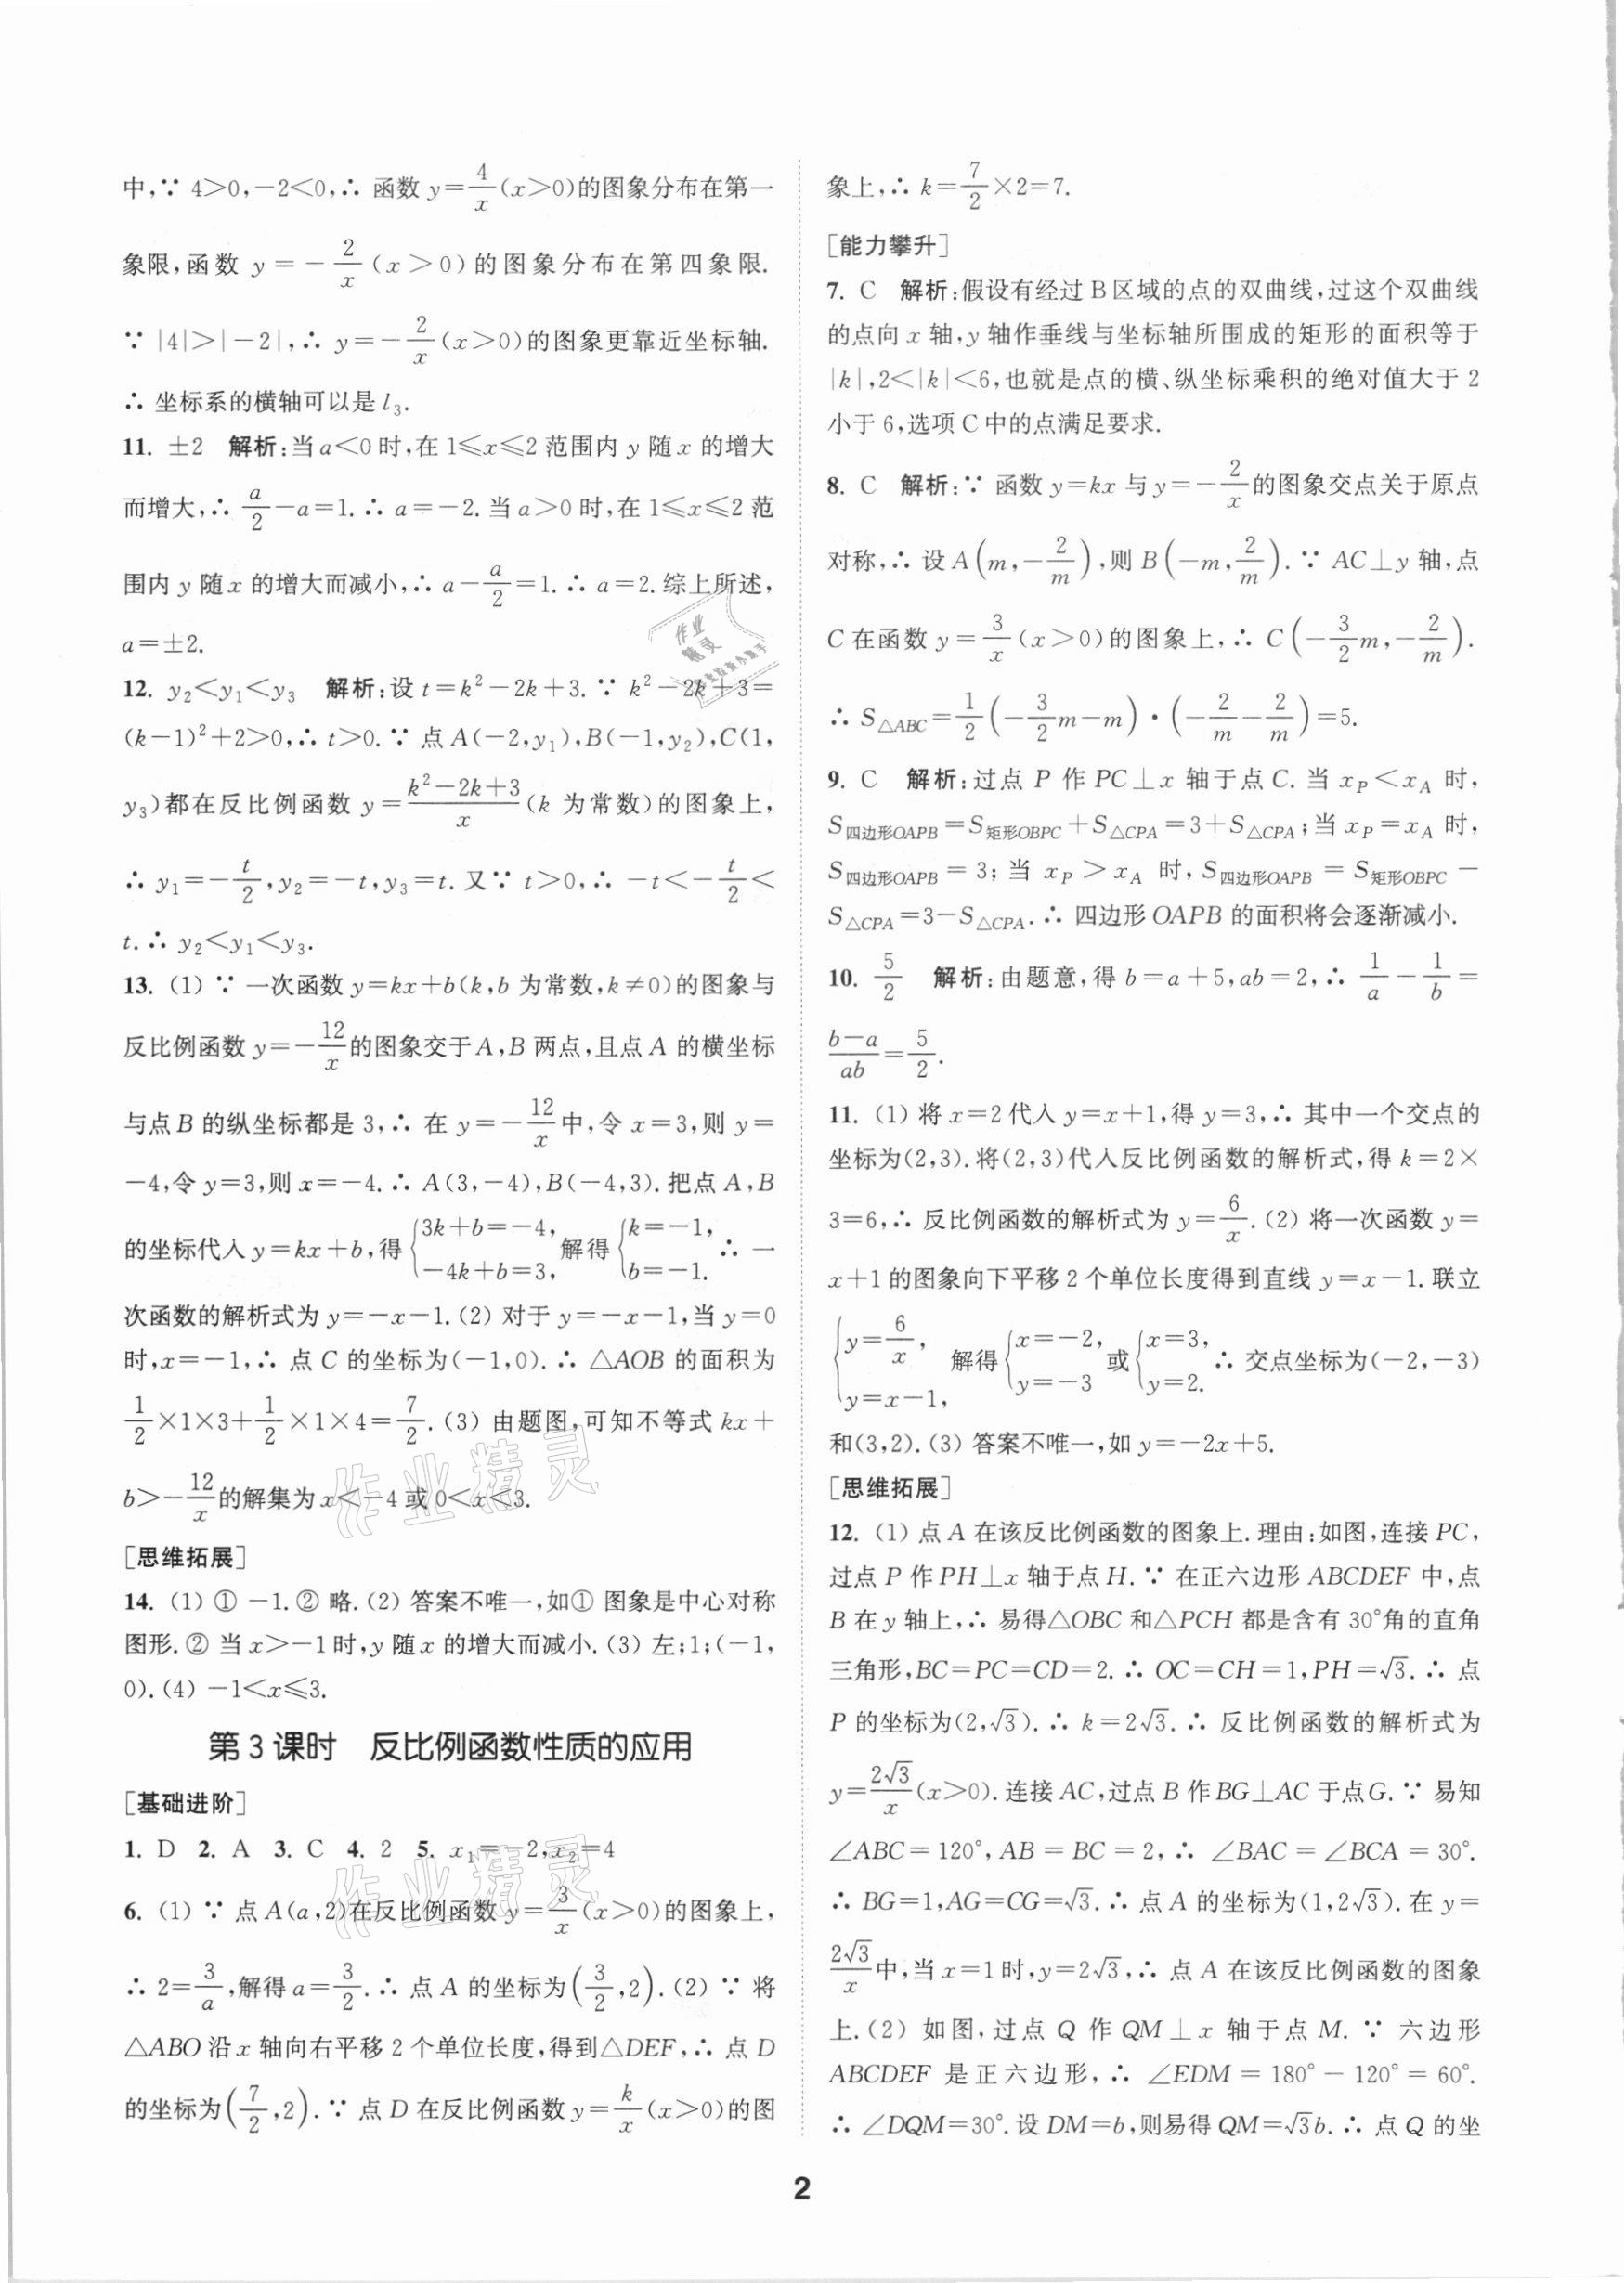 中,∵ 4>0,-2<0,∴ 函数 y=4/x(x>0)的图象分布在第一
象限,函数 y=-2/x(x>0)的图象分布在第四象限.
∵ |4|>|-2|,∴ y=-2/x(x>0)的图象更靠近坐标轴.
∴ 坐标系的横轴可以是 l₃.
11. ±2 解析:当 a<0 时,在 1≤x≤2 范围内 y 随 x 的增大
而增大,∴ a/2-a=1.∴ a=-2.当 a>0 时,在 1≤x≤2 范
围内 y 随 x 的增大而减小,∴ a-a/2=1.∴ a=2.综上所述,
a=±2.
12. y₂<y₁<y₃ 解析:设 t=k²-2k+3.∵ k²-2k+3=
(k-1)²+2>0,∴ t>0.∵ 点 A(-2,y₁),B(-1,y₂),C(1,
y₃)都在反比例函数 y=(k²-2k+3)/x(k 为常数)的图象上,
∴ y₁=-t/2,y₂=-t,y₃=t.又∵ t>0,∴ -t<-t/2<
t.∴ y₂<y₁<y₃.
13. (1) ∵ 一次函数 y=kx+b(k,b 为常数,k≠0)的图象与
反比例函数 y=-12/x的图象交于 A,B 两点,且点 A 的横坐标
与点 B 的纵坐标都是 3,∴ 在 y=-12/x中,令 x=3,则 y=
-4,令 y=3,则 x=-4.∴ A(3,-4),B(-4,3).把点 A,B
的坐标代入 y=kx+b,得{3k+b=-4, -4k+b=3,解得{k=-1, b=-1.∴ 一
次函数的解析式为 y=-x-1.(2) 对于 y=-x-1,当 y=0
时,x=-1,∴ 点 C 的坐标为(-1,0).∴ △AOB 的面积为
1/2×1×3+1/2×1×4=7/2.(3) 由题图,可知不等式 kx+
b>-12/x的解集为 x<-4 或 0<x<3.
[思维拓展]
14. (1) ① -1.② 略.(2) 答案不唯一,如① 图象是中心对称
图形.② 当 x>-1 时,y 随 x 的增大而减小.(3) 左;1;(-1,
0).(4) -1<x≤3.
第 3 课时 反比例函数性质的应用
[基础进阶]
1. D 2. A 3. C 4. 2 5. x₁=-2,x₂=4
6. (1) ∵ 点 A(a,2)在反比例函数 y=3/x(x>0)的图象上,
∴ 2=3/a,解得 a=3/2.∴ 点 A 的坐标为(3/2,2).(2) ∵ 将
△ABO 沿 x 轴向右平移 2 个单位长度,得到△DEF,∴ 点 D
的坐标为(7/2,2).∵ 点 D 在反比例函数 y=k/x(x>0)的图
象上,∴ k=7/2×2=7.
[能力攀升]
7. C 解析:假设有经过 B 区域的点的双曲线,过这个双曲线
的点向 x 轴,y 轴作垂线与坐标轴所围成的矩形的面积等于
|k|,2<|k|<6,也就是点的横、纵坐标乘积的绝对值大于 2
小于 6,选项 C 中的点满足要求.
8. C 解析:∵ 函数 y=kx 与 y=-2/x的图象交点关于原点
对称,∴ 设 A(m,-2/m),则 B(-m,2/m).∵ AC⊥y 轴,点
C 在函数 y=3/x(x>0)的图象上,∴ C(-3/2m,-2/m).
∴ S△ABC=1/2(-3/2m-m)·(-2/m-2/m)=5.
9. C 解析:过点 P 作 PC⊥x 轴于点 C.当 xP<xA 时,
S四边形OAPB=S矩形OBPC+S△CPA=3+S△CPA;当 xP=xA 时,
S四边形OAPB=3;当 xP>xA 时,S四边形OAPB=S矩形OBPC-
S△CPA=3-S△CPA.∴ 四边形 OAPB 的面积将会逐渐减小.
10. 5/2 解析:由题意,得 b=a+5,ab=2,∴ 1/a-1/b=
(b-a)/ab=5/2.
11. (1) 将 x=2 代入 y=x+1,得 y=3,∴ 其中一个交点的
坐标为(2,3).将(2,3)代入反比例函数的解析式,得 k=2×
3=6,∴ 反比例函数的解析式为 y=6/x.(2) 将一次函数 y=
x+1 的图象向下平移 2 个单位长度得到直线 y=x-1.联立
{y=6/x, y=x-1,解得{x=-2, y=-3或{x=3, y=2.∴ 交点坐标为(-2,-3)
和(3,2).(3) 答案不唯一,如 y=-2x+5.
[思维拓展]
12. (1) 点 A 在该反比例函数的图象上.理由:如图,连接 PC,
过点 P 作 PH⊥x 轴于点 H.∵ 在正六边形 ABCDEF 中,点
B 在 y 轴上,∴ 易得△OBC 和△PCH 都是含有 30°角的直角
三角形,BC=PC=CD=2.∴ OC=CH=1,PH=√3.∴ 点
P 的坐标为(2,√3).∴ k=2√3.∴ 反比例函数的解析式为
y=2√3/x(x>0).连接 AC,过点 B 作 BG⊥AC 于点G.∵ 易知
∠ABC=120°,AB=BC=2,∴ ∠BAC=∠BCA=30°.
∴ BG=1,AG=CG=√3.∴ 点 A 的坐标为(1,2√3).在 y=
2√3/x中,当 x=1 时,y=2√3,∴ 点 A 在该反比例函数的图象
上.(2) 如图,过点 Q 作 QM⊥x 轴于点 M.∵ 六边形
ABCDEF 是正六边形,∴ ∠EDM=180°-120°=60°.
∴ ∠DQM=30°.设 DM=b,则易得 QM=√3b.∴ 点 Q 的坐
2
作业精灵
作业精灵
作业精灵